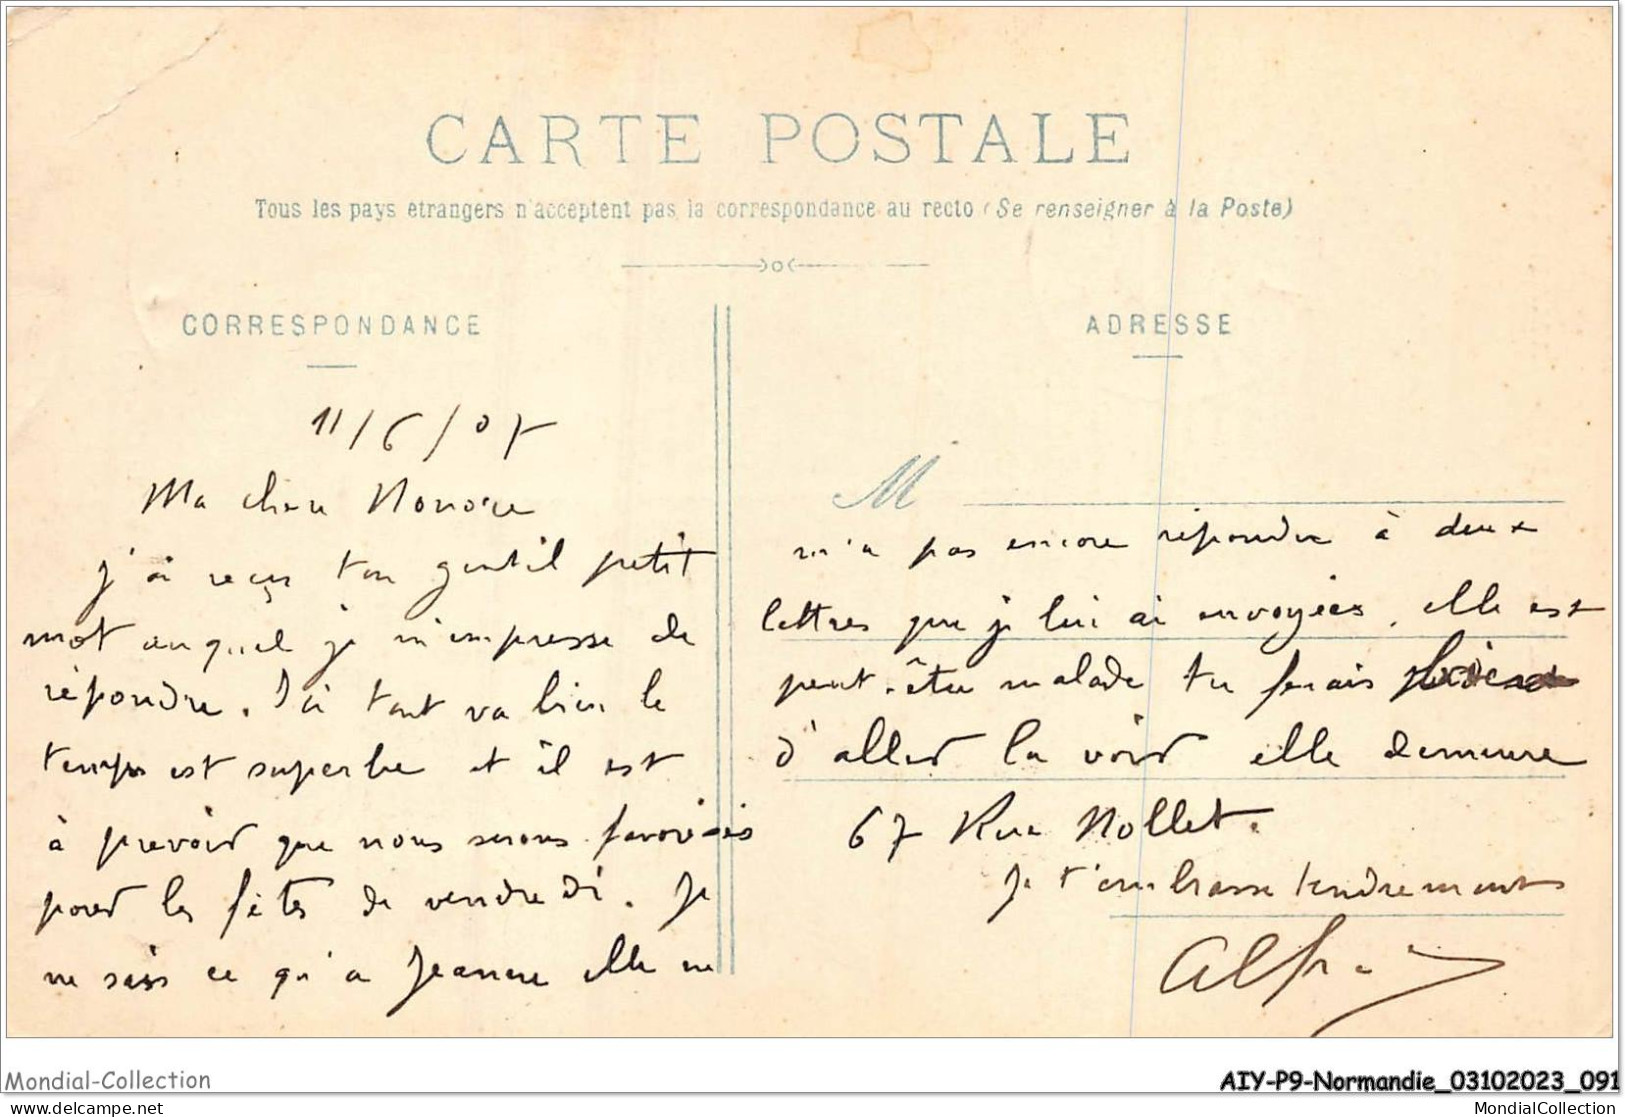 CARTE POSTALE
Tous les pays étrangers n'acceptent pas la correspondance au recto (Se renseigner à la Poste)
CORRESPONDANCE
11/6/07
Ma chère
j'ai reçu ton gentil petit
mot auquel je m'empresse de
répondre. Ici tout va bien le
temps est superbe et il est
à prevoir que nous serons favorisés
pour les fêtes de vendredi. Je
ne sais ce qu'a Jeanne elle ne
ADRESSE
M
m'a pas encore répondre à deux
lettres que je lui ai envoyées, elle est
peut-être malade tu ferais
d'aller la voir elle demeure
67 Rue Nollet.
Je t'embrasse tendrement
Alfred
Mondial-Collection
AIY-P9-Normandie_03102023_091
delcampe.net
MondialCollection